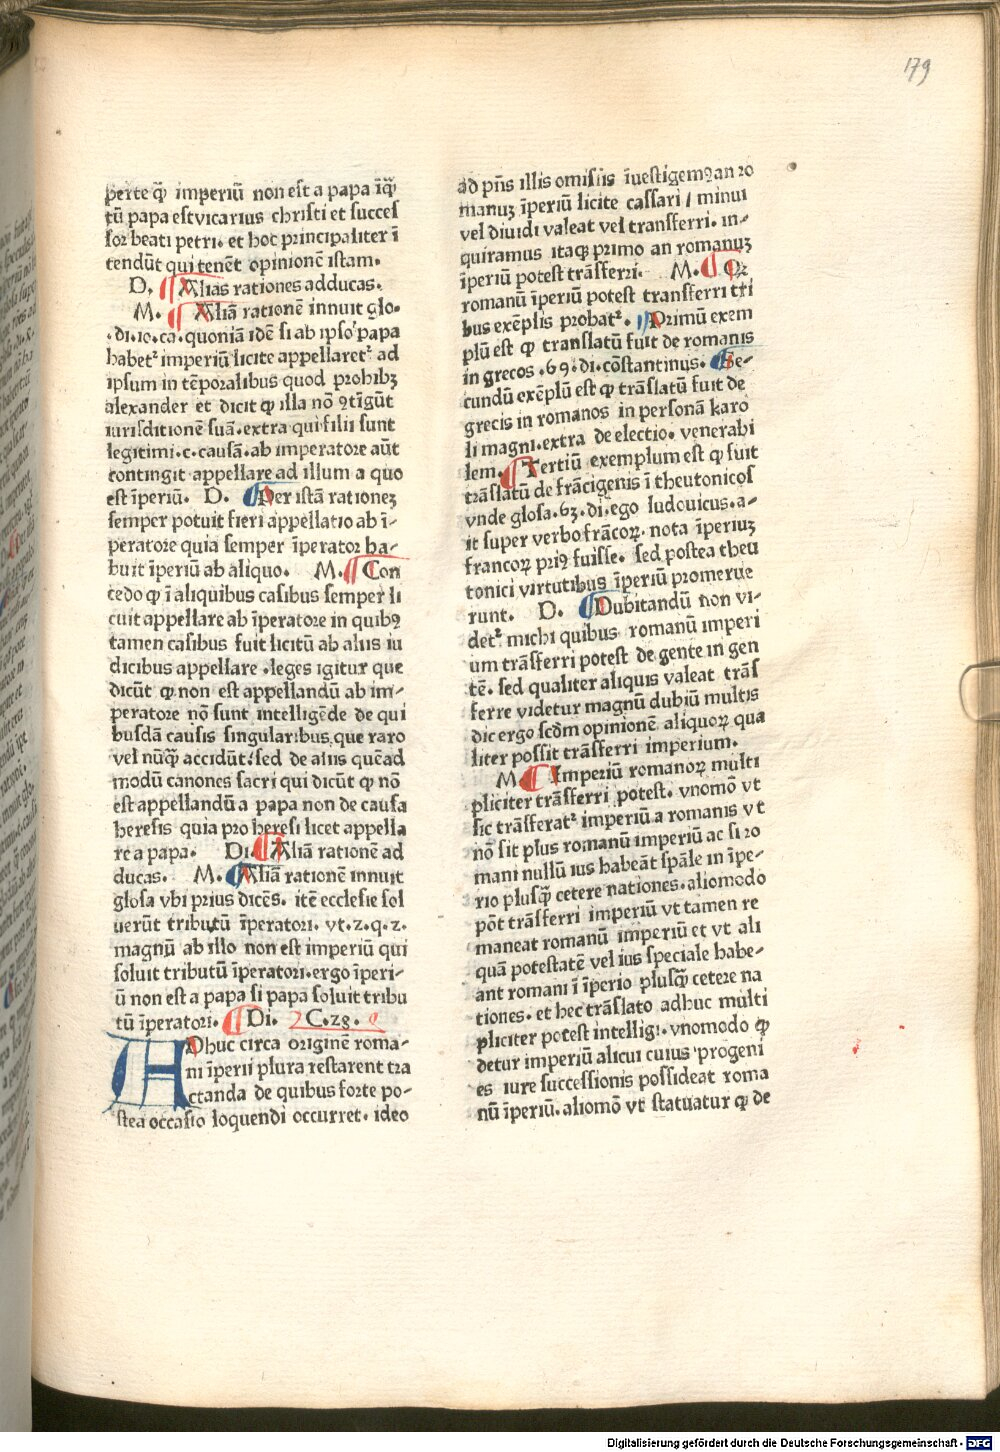 179
perte qͥ imperiū non est a papa īqͣ
tū papa est vicarius christi et succes
sor beati petri. et hoc principaliter ī
tendūt qui tenēt opinionē istam.
D. ¶ Alias rationes adducas.
M. ¶ Aliā rationē innuit glo.
.di.io.ca.quoniā idē si ab ipso papa
habetᷣ imperiū licite appellaretᷣ ad
ipsum in tēporalibus quod prohibꝫ
alexander et dicit ꝙ illa nō ꝯtīgūt
iurisditionē suā.extra qui filii sunt
legitimi.c.causā.ab imperatore aūt
contingit appellare ad illum a quo
est īperiū. D. ¶ Per istā rationeꝫ
semper potuit fieri appellatio ab ī-
peratore quia semper īperator ha-
buit īperiū ab aliquo. M. ¶ Con
cedo ꝙ ī aliquibus casibus semper li
cuit appellare ab īperatore in quibꝯ
tamen casibus fuit licitū ab aliis iu
dicibus appellare .leges igitur que
dicūt ꝙ non est appellandū ab im-
peratore nō sunt intelligēde de qui
busdā causis singularibus que raro
vel nūqͣ accidūt: sed de aliis quēad
modū canones sacri qui dicūt ꝙ nō
est appellandū a papa non de causa
heresis quia pro heresi licet appella
re a papa. Di. ¶ Aliā rationē ad
ducas. M. ¶ Aliā rationē innuit
glosa vbi prius dicēs. itē ecclesie sol
uerūt tributū īperatori. vt.z.q.z.
magnū ab illo non est imperiū qui
soluit tributū īperatori.ergo īperi-
ū non est a papa si papa soluit tribu
tū īperatori. ¶ Di. C.z8.
ADhuc circa originē roma-
ni īperii plura restarent tra
ctanda de quibus forte po-
stea occasio loquendi occurret. ideo
ad pn̄s illis omissis īuestigemꝯ an ro
manuꝫ īperiū licite cassari / minui
vel diuidi valeat vel transferri. in-
quiramus itaqꝫ primo an romanuꝫ
īperiū potest trāsferri. M. ¶ Qꝫ
romanū īperiū potest transferri tri
bus exēplis probatᷣ. ¶ Primū exem
plū est ꝙ translatū fuit de romanis
in grecos .69.di.cōstantinus. ¶ Se-
cundū exēplū est ꝙ trāslatū fuit de
grecis in romanos in personā karo
li magni.extra de electio. venerabi
lem. ¶ Tertiū exemplum est ꝙ fuit
trāslatū de frācigenis ī theutonicos
vnde glosa.6ꝫ.di.ego ludouicus.a-
it super verbo frācoꝝ. nota īperiuꝫ
francoꝝ priꝯ fuisse. sed postea theu
tonici virtutibus īperiū promerue
runt. D. ¶ Dubitandū non vi-
detᷣ michi quibus romanū imperi
um trāsferri potest de gente in gen
tē. sed qualiter aliquis valeat trās
ferre videtur magnū dubiū multis
dic ergo scd̄m opinionē aliquoꝝ qua
liter possit trāsferri imperium.
M. ¶ Imperiū romanoꝝ multi
pliciter trāsferri potest. vnomō vt
sic trāsferatᷣ imperiū a romanis vt
nō sit plus romanū imperiū ac si ro
mani nullū ius habeāt sp̄ale in īpe-
rio plusqͣ cetere nationes.aliomodo
pōt trāsferri imperiū vt tamen re
maneat romanū imperiū et vt ali
quā potestatē vel ius speciale habe-
ant romani ī īperio plusqͣ cetere na
tiones. et hec trāslato adhuc multi
pliciter potest intelligi. vnomodo ꝙ
detur imperiū alicui cuius progeni
es iure successionis possideat roma
nū īperiū. aliomō vt statuatur ꝙ de
Digitalisierung gefördert durch die Deutsche Forschungsgemeinschaft - DFG